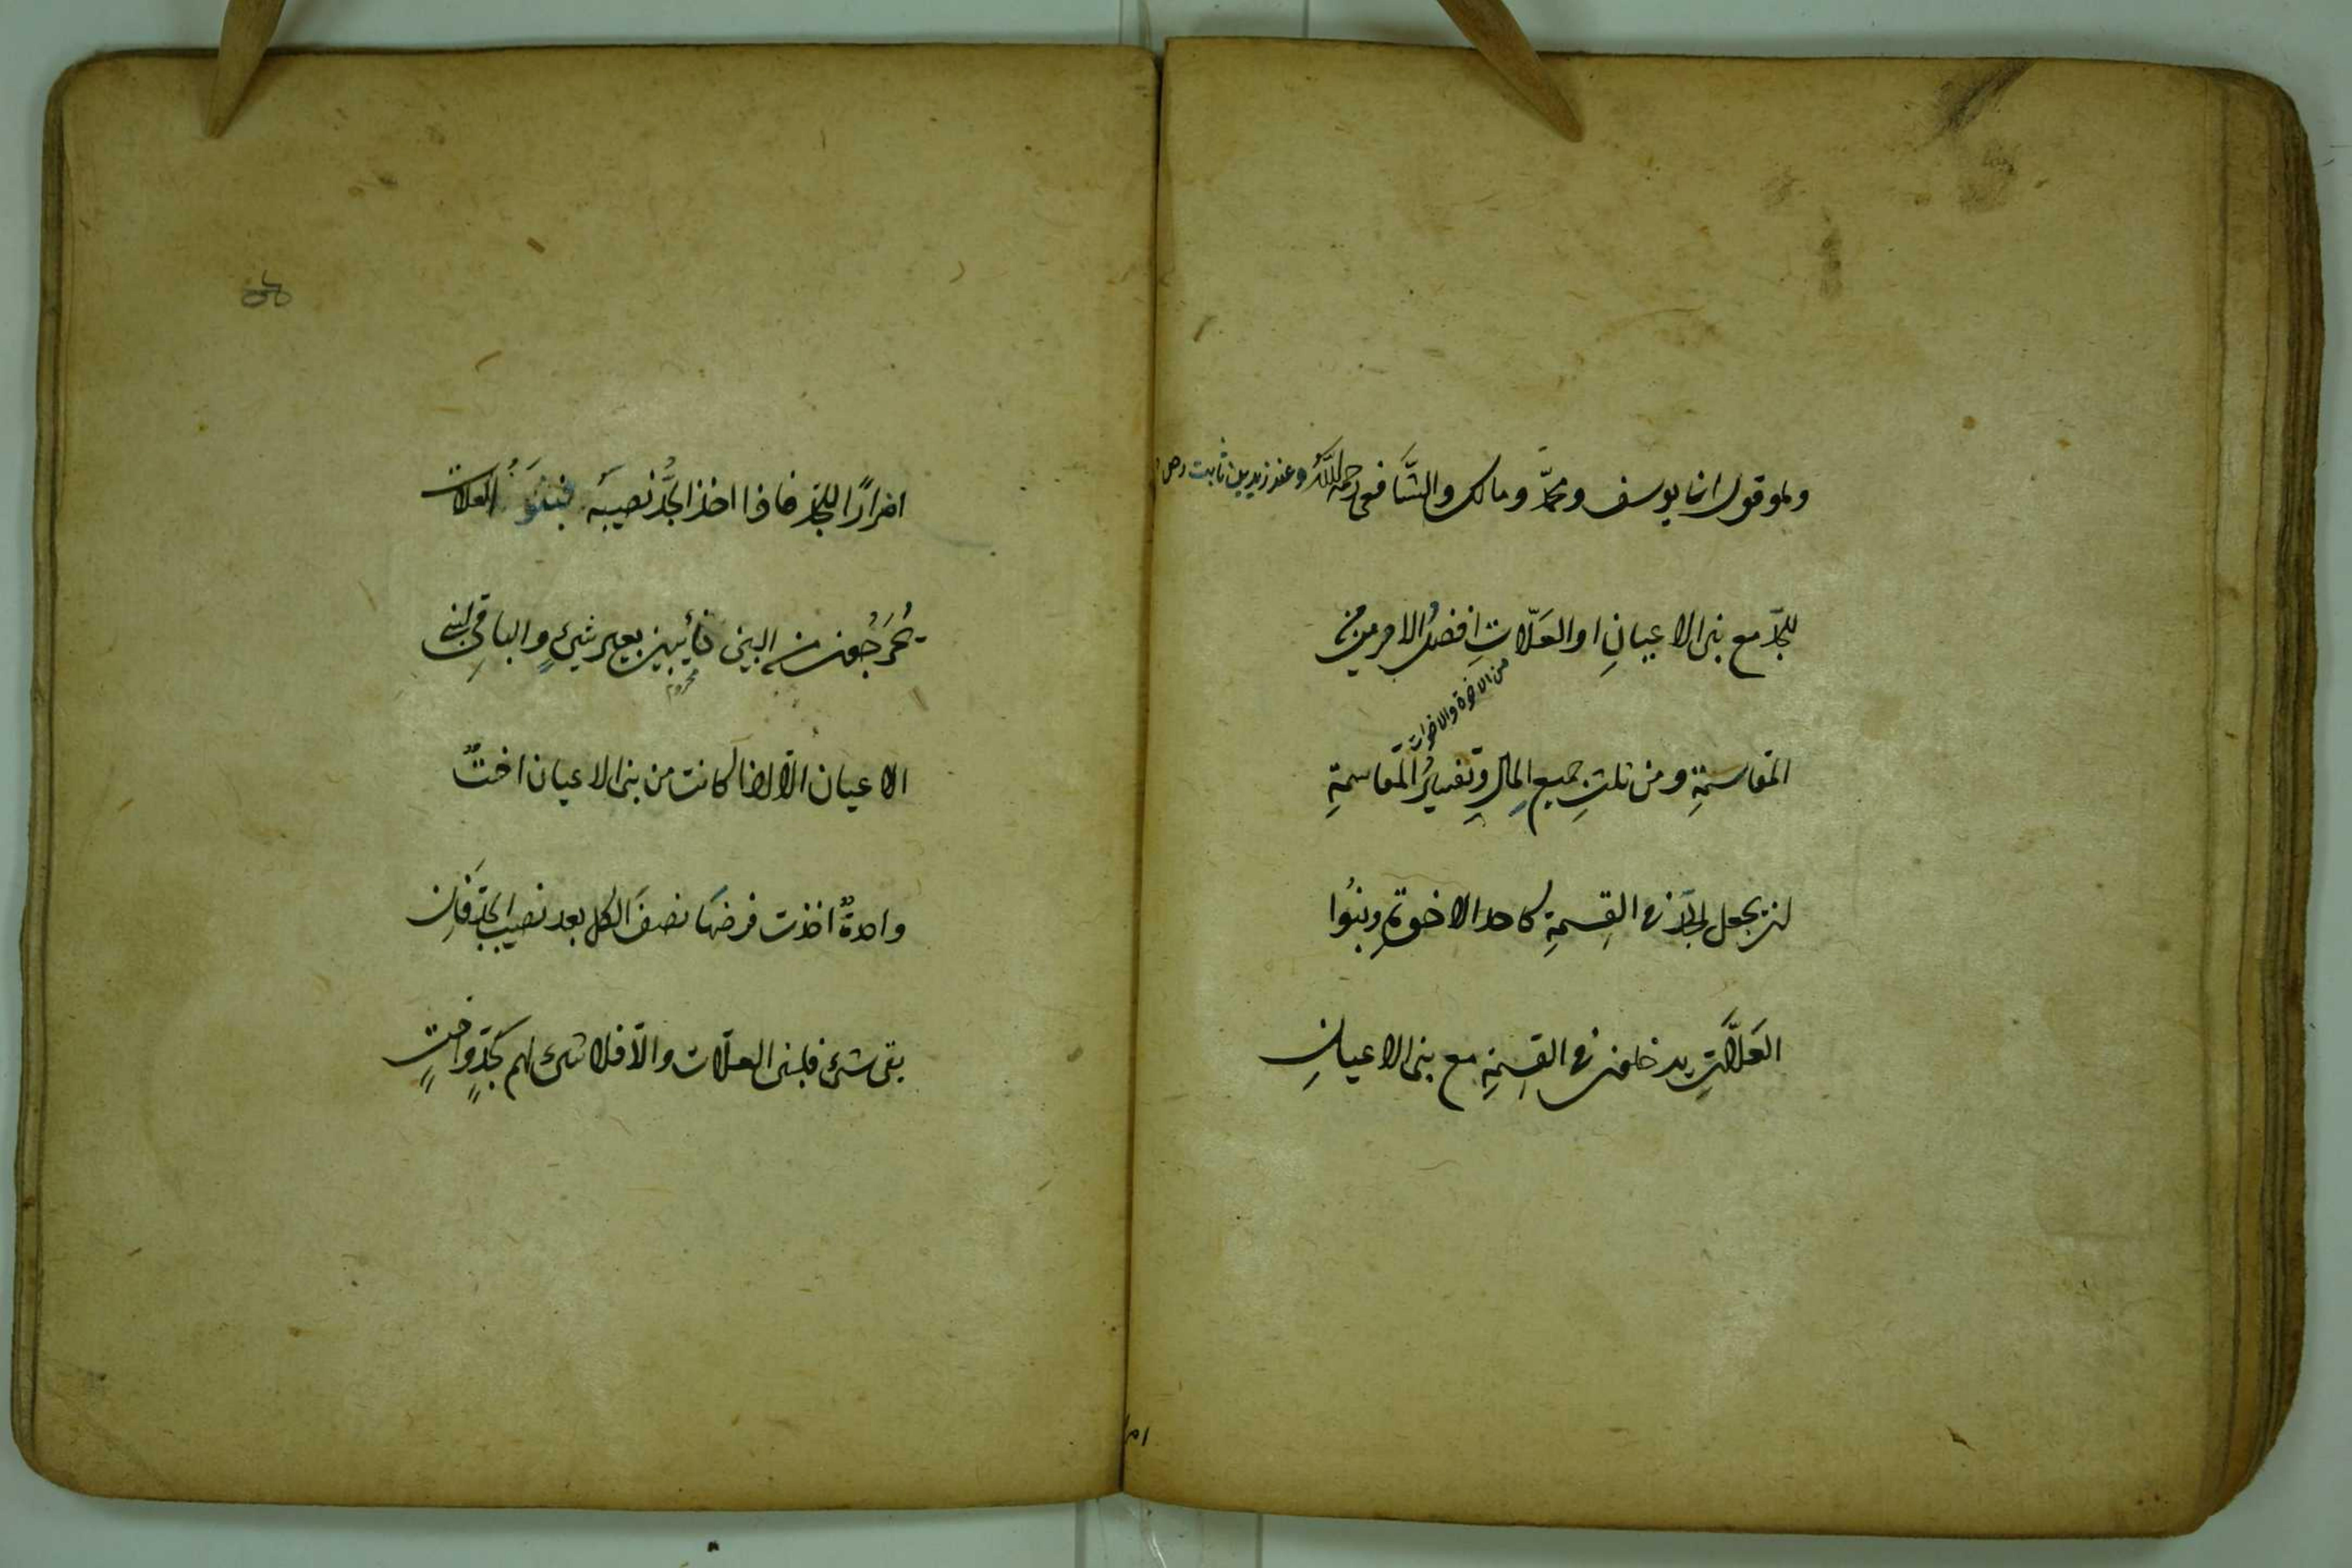 وهو قول ابى يوسف ومحمّد ومالك والشَّافعى رحمهم اللّٰه وعند زيد بن ثابت رض
للجدّ مع بنى الاعيانِ او العَلّاتِ افضلُ الامرين من
من الاخوة والاخوات
المقاسمةِ ومن ثلثِ جميعِ المالِ وتفسيرُ المقاسمةِ
ان يجعل الجدّ فى القِسمةِ كاحد الاخوةِ وبنُوا
العَلَّاتِ يدخلون فى القِسمةِ مع بنى الاعيانِ
اضرارًا للجدّ فاذا اخذ الجدُّ نصيبَه فبنُو العلات
يُخرَجُون من البين خائبين بغير شيءٍ والباقِى لبنى
محروم
الاعيان الّا اذا كانت من بنى الاعيان اختٌ
واحدةٌ اخذت فرضها نصفَ الكل بعد نصيب الجدّ فَاِن
بقى شىء فلبنى العلّات والّا فلا شىء لهم كجدٍّ واختٍ